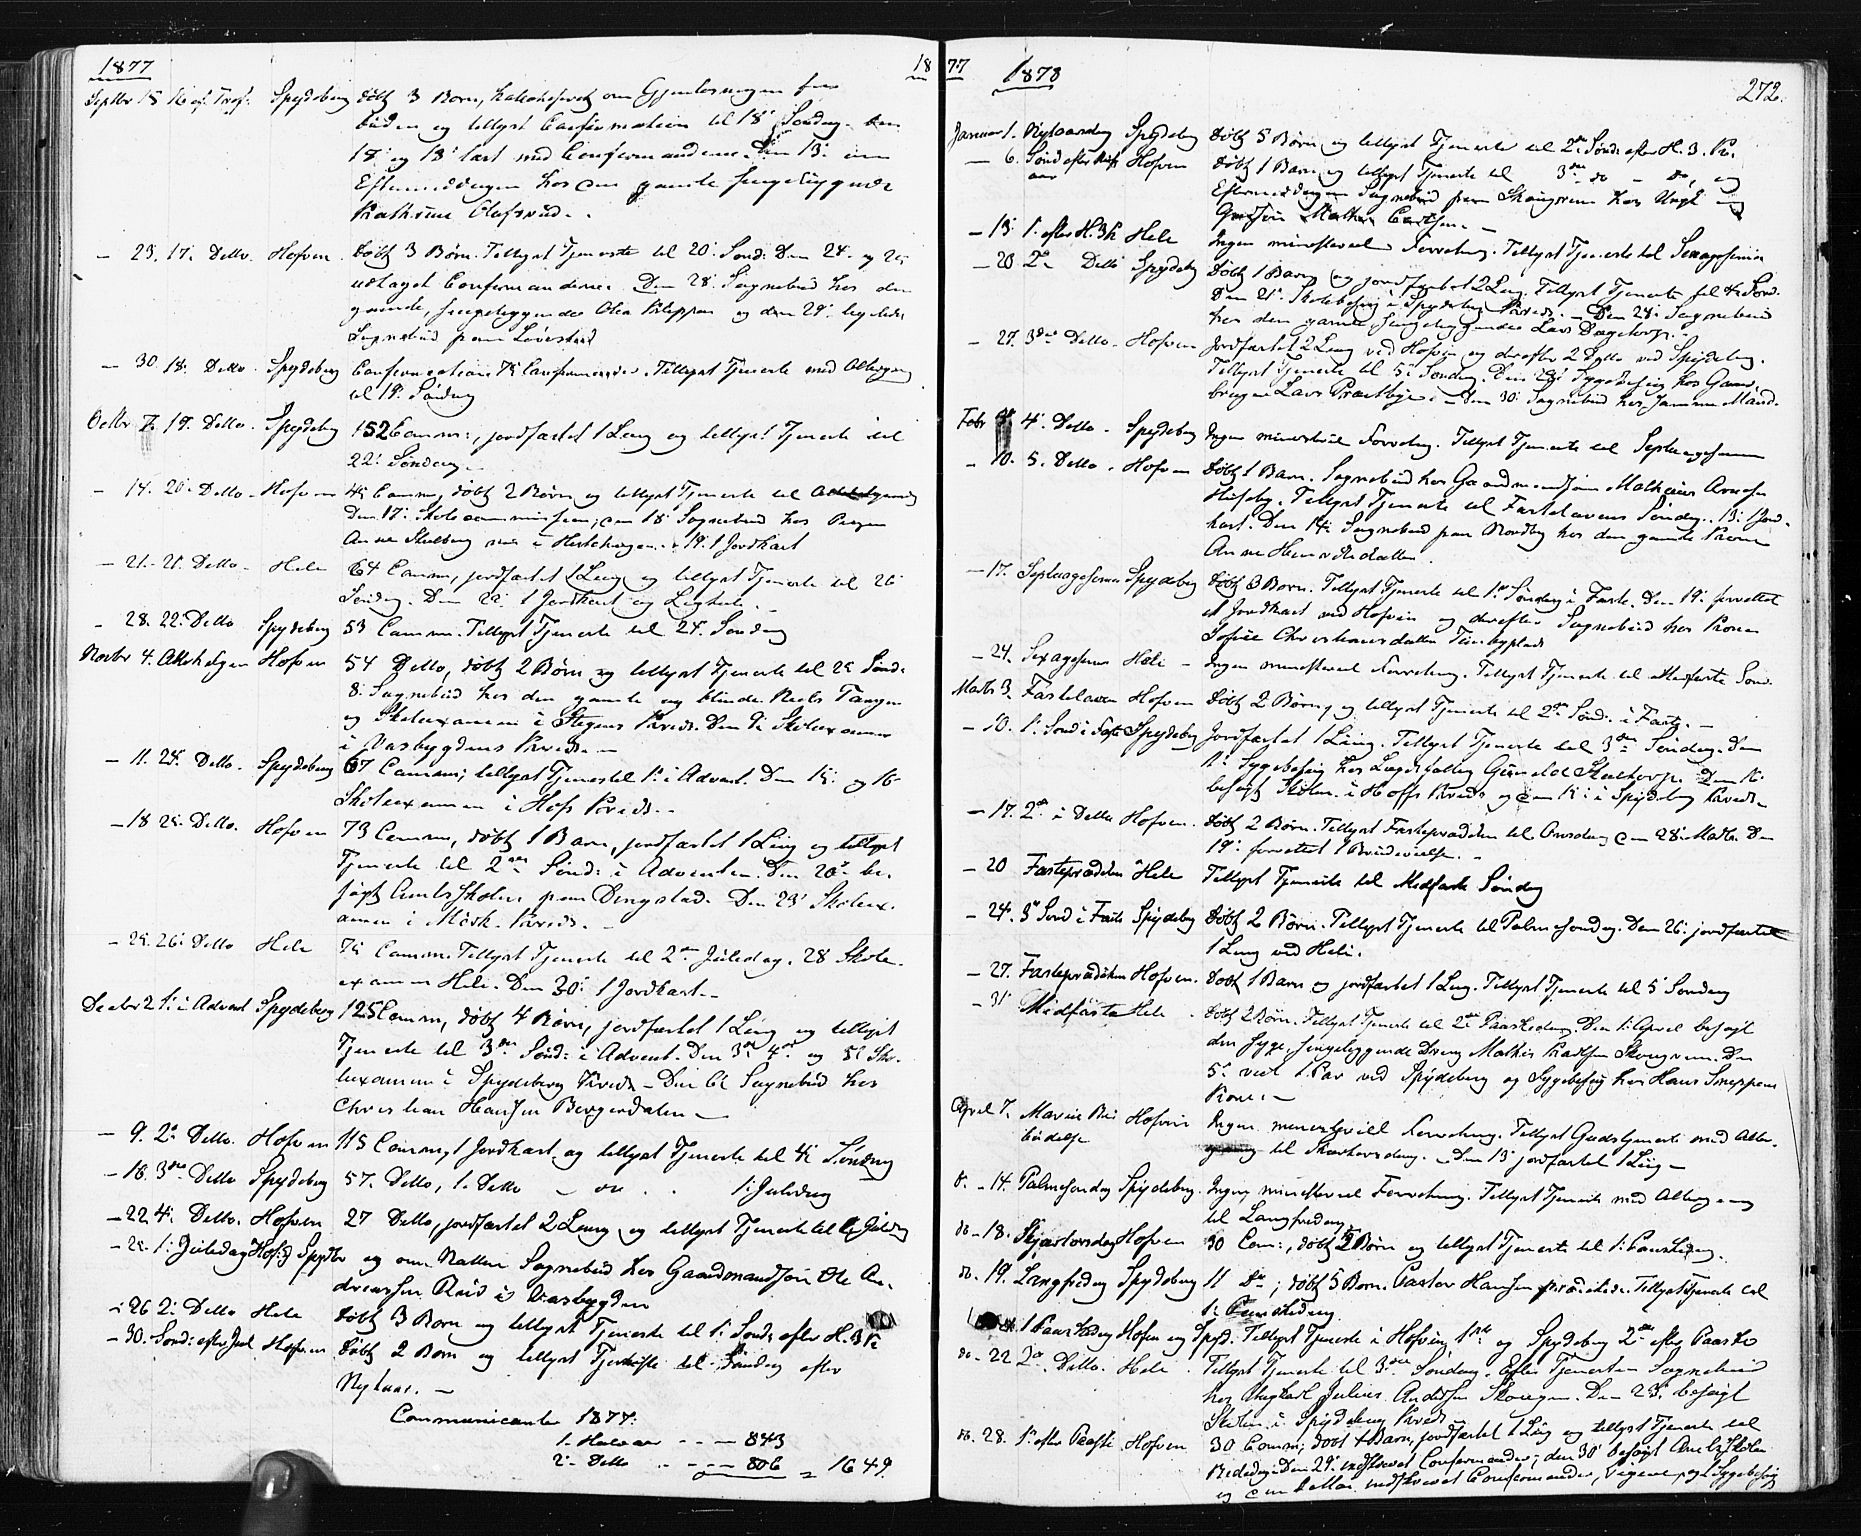 1877
18
Septbr 15 16 ef. Tref. Spydeberg døbt 3 Børn, katekiseret om Gjenløsningen
og tillyst Confirmation til 18 Søndag. Den
12. og 13. læst med Confirmanderne. Den 13. om
Eftermiddagen hos den gamle sengeliggende
Kathrine Olafsrud.
— 23. 17. Detto. Hofvin. døbt 3 Børn. Tillyst Tjeneste til 20. Sønd. Den 24. og 25
udtaget Confirmanderne. Den 28. Sognebud hos den
gamle, sengeliggende Olea Kleppen og den 29. ligeledes
Sognebud paa Løvestad
— 30. 18. Detto. Spydeberg Confirmation 75 Confirmander. Tillyst Tjeneste med Altergang
til 19. Søndag
Octbr 7. 19. Detto. Spydeberg 152 Comm:, jordfæstet 1 Liig og tillyst Tjeneste til
22. Søndag
— 14. 20. Detto. Hofvin 45 Comm, døbt 2 Børn og tillyst Tjeneste til
Den 17. Skolecommission, den 18. Sognebud hos Pigen
Anne . 19. 1 Jordkast
— 21. 21. Detto. Heli 64 Comm, jordfæstet 1 Liig og tillyst Tjeneste til 25
Søndag. Den 22. 1 Jordkast og
— 28. 22. Detto Spydeberg 53 Comm. Tillyst Tjeneste til 24. Søndag
Novbr 4. Allehelgen Hofvin 54 Detto, døbt 2 Børn og tillyst Tjeneste til 25 Sønd.
8. Sognebud hos den gamle og blinde Niels Tangen
og Skoleexamen i Stegens Kreds. Den 9. Skoleexamen
i Vasbygdens Kreds.
— 11. 24. Detto. Spydeberg 67 Comm; tillyst Tjeneste til 1. i Advent. Den 15. og 16
Skoleexamen i Hofs Kreds.
— 18 25. Detto. Hofvin 73 Comm, døbt 1 Barn, jordfæstet 1 Liig og tillyst
Tjeneste til 2den Sønd: i Adventen. Den 20de be-
søgt Amtsskolen paa Dingstad. Den 23. Skoleex-
amen i Kreds.
— 25. 26. Detto Heli 75 Comm. Tillyst Tjeneste til 2den Juledag. 28 Skole-
examen Heli. Den 30. 1 Jordkast.
Decbr 2 1. i Advent Spydeberg 125 Comm, døbt 4 Børn, jordfæstet 1 Liig og tillyst
Tjeneste til 3die Sønd: i Advent. Den 3de 4de og 5te Sko-
leexamen i Spydeberg Kreds — Den 6te Sognebud hos
Christian Hansen Bergerdalen —
— 9. 2. Detto. Hofvin 115 Comm, 1 Jordkast og tillyst Tjeneste til 4. Søndag
— 16. 3die Detto Spydeberg 57. Detto, 1. Detto — do . . 1. Juledag
— 22. 4. Detto. Hofvin 27 Detto, jordfæstet 2 Liig og tillyst Tjeneste til 2. Juledag
— 25. 1. Juledag Hof. og Spydbr og om Natten Sognebud hos Gaardmandssøn Ole An-
dreassen Rud i Vasbygden
— 26 2. Detto Heli døbt 3 Børn og tillyst Tjeneste til 1. Sønd: efter H. 3 K
— 30. Sønd: efter Juul Hofvin døbt 2 Børn og tillyst Tjeneste til Søndag efter
Nytaar. —
Communicanter 1877:
1. Halvaar - - — 843
2. Detto - — — 806 = 1649.
77 1878
272.
Januar 1. Nytaarsdag Spydeberg døbt 5 Børn og tillyst Tjeneste til 2. Sønd: efter H. 3. K.
— 6. Sønd efter Nyt- Hofvin døbt 1 Barn og tillyst Tjeneste til 3die do — do, og
aar Eftermiddagen Sognebud paa Skaugrim hos
— 13. 1. efter H. 3 K Heli Ingen ministeriel Forretning. Tillyst Tjeneste til Sexagesima
— 20. 2den Detto Spydeberg døbt 1 Barn og jordfæstet 2 Liig. Tillyst Tjeneste til 4. Sønd.
Den 21. Skolebesøg i Spydeberg Kreds. — Den 24. Sognebud
hos den gamle, sengeliggende Lars
— 27. 3die Detto. Hofvin Jordfæstet 2 Liig ved Hofvin og derefter 2 Detto ved Spydeberg.
Tillyst Tjeneste til 5. Søndag. Den Sygebesøg hos Gaard-
bruger Lars Præstbye. — Den 30. Sognebud hos
Febr 4. Detto. Spydeberg Ingen ministeriel Forretning. Tillyst Tjeneste til Septuagesima
— 10. 5. Detto. Hofvin døbt 1 Barn. Sognebud hos Gaardmandssøn Mathias
Huseby. Tillyst Tjeneste til Fastelavens Søndag. 13. 1 Jord-
kast. Den 14. Sognebud paa Nordby hos den gamle Kone
Anne Henriksdatter.
— 17. Septuagesima Spydeberg døbt 3 Børn. Tillyst Tjeneste til 1. Søndag i Faste. Den 19. forrettet
et Jordkast ved Hofvin og derefter Sognebud hos Konen
Sofie Christiansdatter
— 24. Sexagesima Heli — Ingen ministeriel Forretning. Tillyst Tjeneste til Midfaste Sønd.
Marts 3. Fastelaven Hofvin døbt 2 Børn og tillyst Tjeneste til 2den Sønd. i Faste. —
— 10. 1. Sønd i Faste Spydeberg Jordfæstet 1 Liig. Tillyst Tjeneste til 3die Søndag. Den
Sygebesøg hos
besøgt Skolen i Hoffs Kreds og den 15. i Spydeberg Kreds.
— 17. 2den i Detto Hofvin. døbt 2 Børn. Tillyst Fasteprædiken til Onsdag den 28. Marts. Den
19. forrettet 1 Brudevielse. —
— 20 Fasteprædiken Heli Tillyst Tjeneste til Midfaste Søndag
— 24. 3. Sønd i Faste Spydeberg døbt 2 Børn. Tillyst Tjeneste til Palmesøndag. Den 26. jordfæstet
1 Liig ved Heli.
— 27. Fasteprædiken Hofvin. døbt 1 Barn og jordfæstet 1 Liig. Tillyst Tjeneste til 5 Søndag
— 31 Midfaste Heli . døbt 2 Børn. Tillyst Tjeneste til 2den Paaskedag. Den 1. April besøgt
den syge, sengeliggende Dreng Mathis Skougrim. Den
5. viet 1 Par ved Spydeberg og Sygebesøg hos Hans
Kone. —
April 7. Mariæ Be- Hofvin Ingen ministeriell Forretning. Tillyst Gudstjeneste med Alter-
budelse gang til Skærtorsdag. — Den 13 jordfæstet 1 Liig —
d. — 14. Palmesøndag Spydeberg. Ingen ministeriel Forretning. Tillyst Tjeneste med Altergang
til Langfredag.
do — 18. Skjærtorsdag Hofvin 30 Com:, døbt 2 Børn og tillyst Tjeneste til 1. Paaskedag.
do. 19. Langfredag Spydeberg 11 do; døbt 5 Børn. Pastor Hansen prædikede. Tillyst Tjeneste til
1. Paaskedag
1 Paaskedag Hofvin og Spyd. Tillyst Tjeneste i Hofvin 1ste og Spydeberg 2den efter Paaske
do. 22 2den Detto. Heli . Tillyst Tjeneste til 3die Søndag. Efter Tjenesten Sognebud
hos Ungkarl Julius Skougen. Den 23. besøgt
Skolen i Spydeberg Kreds
do. 28. 1. efter Paaske Hofvin 30 Comm; døbt 4 Børn, jordfæstet 1 Liig og tillyst Tjeneste til
Bededag. Den 29. indskrevet Confirmander; den 30. besøgt Amtsskolen
og den 1 Mai indskrevet Confirmander, og 1 Sygebesøg